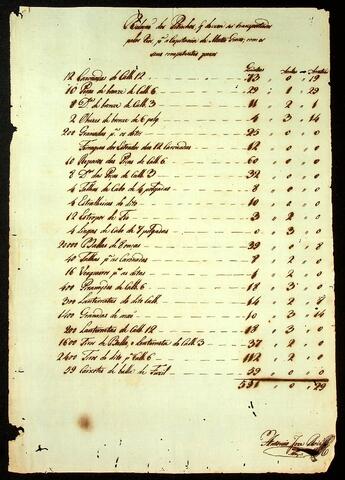 Relação dos Petrechos, q devem ser transportados
pelos Rios, pª a Capitania de Matto Grosso, com os
seus competentes pezos
Quintaes Arobas Arrateis
12 Caronadas de Calb. 12 73 0 19
10 Peças de bronze de Calb. 6 29 1 29
8 Dªˢ de bronze de Calb. 3 11 2 1
2 Obuzes de bronze de 6 polg. 4 3 14
200 Granadas pª os ditos 25 0 0
Ferragens dos Estrados das 12 Caronadas 12 0 0
10 Reparos das Peças de Calb. 6 60 0 0
8 Dºˢ das Peças de Calb. 3 32 0 0
4 Talhas de Cabo de 4 polgadas 8 0 0
4 de dito 10 0 0
12 Estropos de Fio 3 2 0
4 de Cabo de 7 polgadas 0 3 0
2000 Ballas de 39 0 8
40 Palhas pª as Caronadas 8 2 0
16 Vergueiros pª as ditas 4 2 0
400 de Calb. 6 18 3 0
300 Lanternetas do dito Calb. 14 2 8
1400 Granadas de mão 10 3 14
200 Lanternetas de Calb. 12 18 3 0
1600 Tiros de Balla, e Lanterneta de Calb. 3 37 2 0
2400 Tiros de dito pª Calb. 6 112 2 0
59 Caixotes de balla de Fuzil 59 0 0
551 0 29
Antonio José